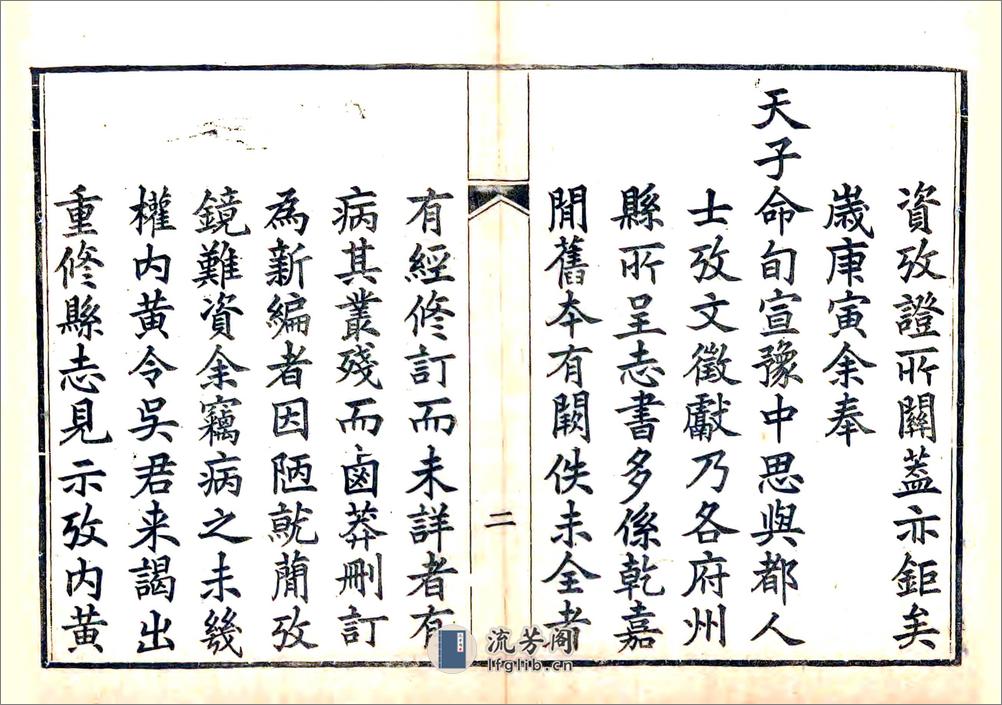 資攷證所關蓋亦鉅矣
歲庚寅余奉
天子命旬宣豫中思與都人
士攷文徵獻乃各府州
縣所呈志書多係乾嘉
閒舊本有闕佚未全者
二
有經修訂而未詳者有
病其叢殘而鹵莽刪訂
為新編者因陋就蕳攷
鏡難資余竊病之未幾
權内黄令吳君来謁出
重修縣志見示攷内黄
流芳阁
lfglib.cn